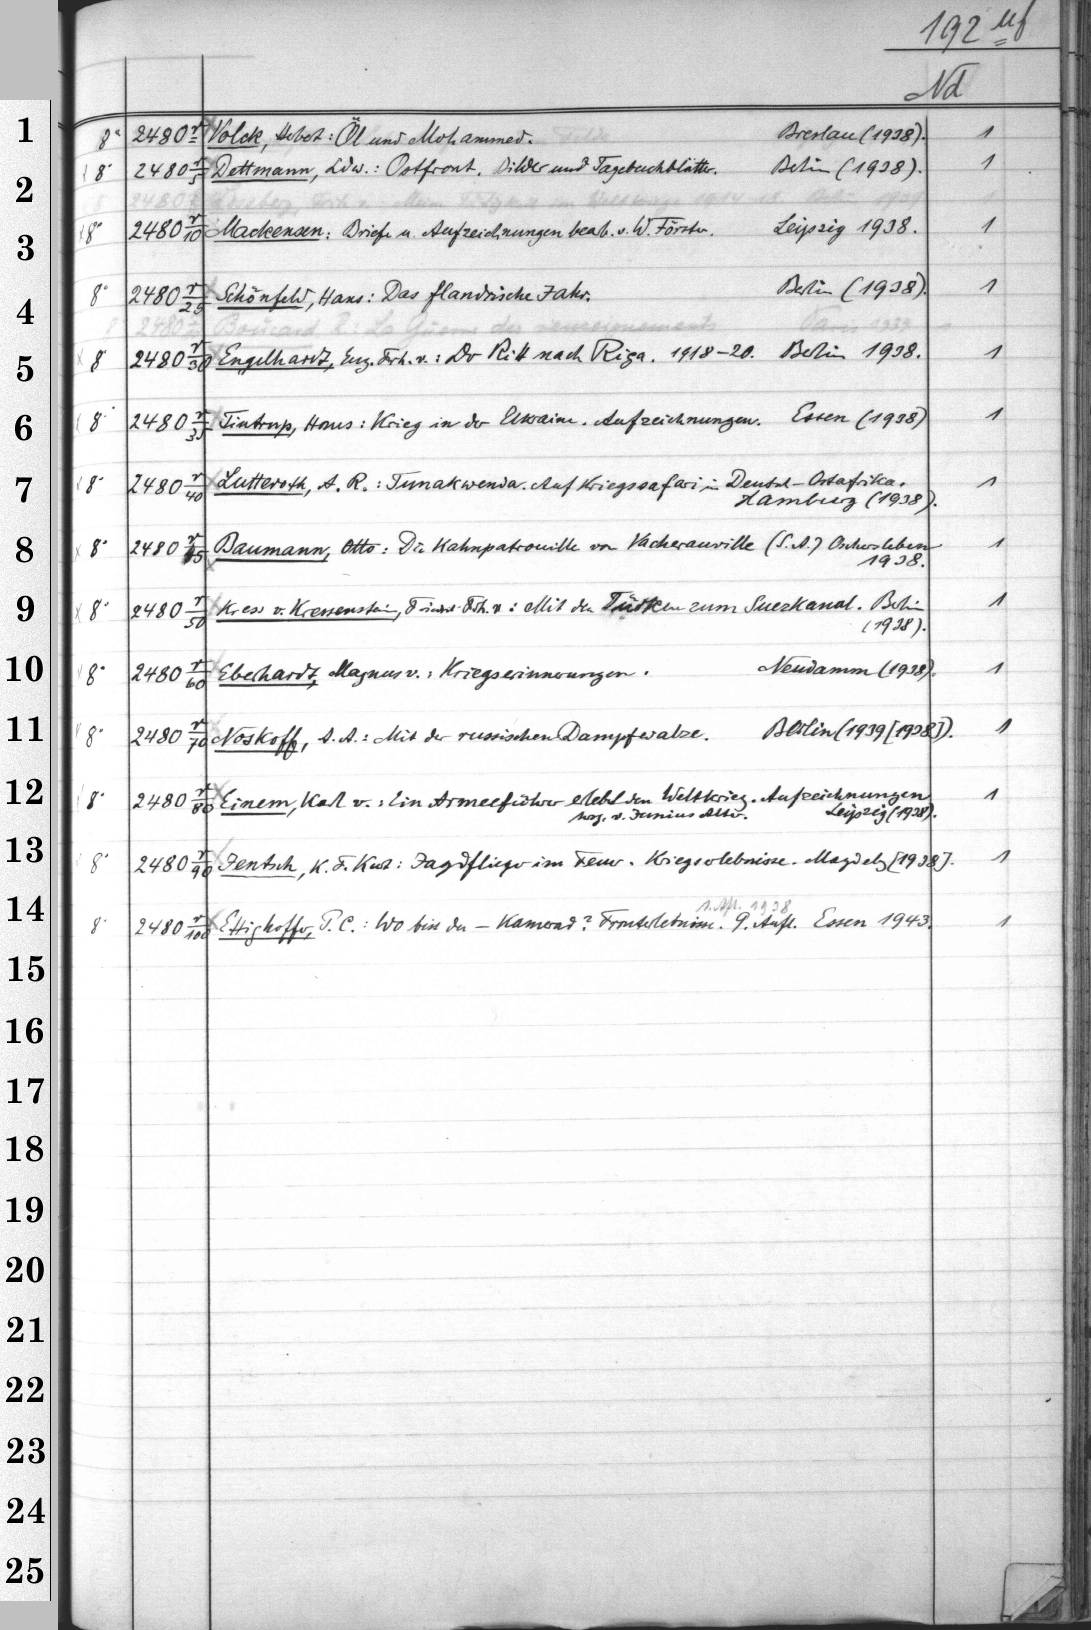 192 uf
Nd
1 8° 2480 r Volck, Herbert: Öl und Mohammed. Breslau (1938). 1
8° 2480 r/5 Dettmann, Ldw.: Ostfront. Bilder und Tagebuchblätter. Berlin (1938). 1
2 8 2480 r Mein im Weltkriege 1914-18
3 8° 2480 r/10 Mackensen: Briefe u. Aufzeichnungen bearb. v. W. Förster. Leipzig 1938. 1
4 8° 2480 r/25 Schönfeld, Hans: Das flandrische Jahr. Berlin (1938). 1
8° 2480 Boucard R.: La Guerre des renseignements Paris 1939
5 8° 2480 r/30 Engelhardt, Eug. Frh. v.: Der Ritt nach Riga. 1918-20. Berlin 1938. 1
6 8° 2480 r/35 Tintrup, Hans: Krieg in der Ukraine. Aufzeichnungen. Essen (1938) 1
7 8° 2480 r/40 Lutteroth, A. R.: Tunakwenda. Auf Kriegssafari in Deutsch-Ostafrika. 1
Hamburg (1938).
8 8° 2480 r/45 Baumann, Otto: Die Kahnpatrouille von Vacherauville (S.A.) Oschersleben 1
1938.
9 8° 2480 r/50 Kress v. Kressenstein, Friedr. Frh. v.: Mit den Türken zum Suezkanal. Berlin 1
(1938).
10 8° 2480 r/60 Eberhardt, Magnus v.: Kriegserinnerungen. Neudamm (1938). 1
11 8° 2480 r/70 Noskoff, A. A.: Mit der russischen Dampfwalze. Berlin (1939 [1938]). 1
12 8° 2480 r/80 Einem, Karl v.: Ein Armeeführer erlebt den Weltkrieg. Aufzeichnungen 1
hrsg. v. Junius Alter. Leipzig (1938).
13 8° 2480 r/90 Jentsch, K. F. Kurt: Jagdflieger im Feuer. Kriegserlebnisse. Magdebg [1938]. 1
1. Afl. 1938
14 8° 2480 r/100 Ettighoffer, P. C.: Wo bist du – Kamerad? Fronterlebnisse. 9. Aufl. Essen 1943. 1
15
16
17
18
19
20
21
22
23
24
25